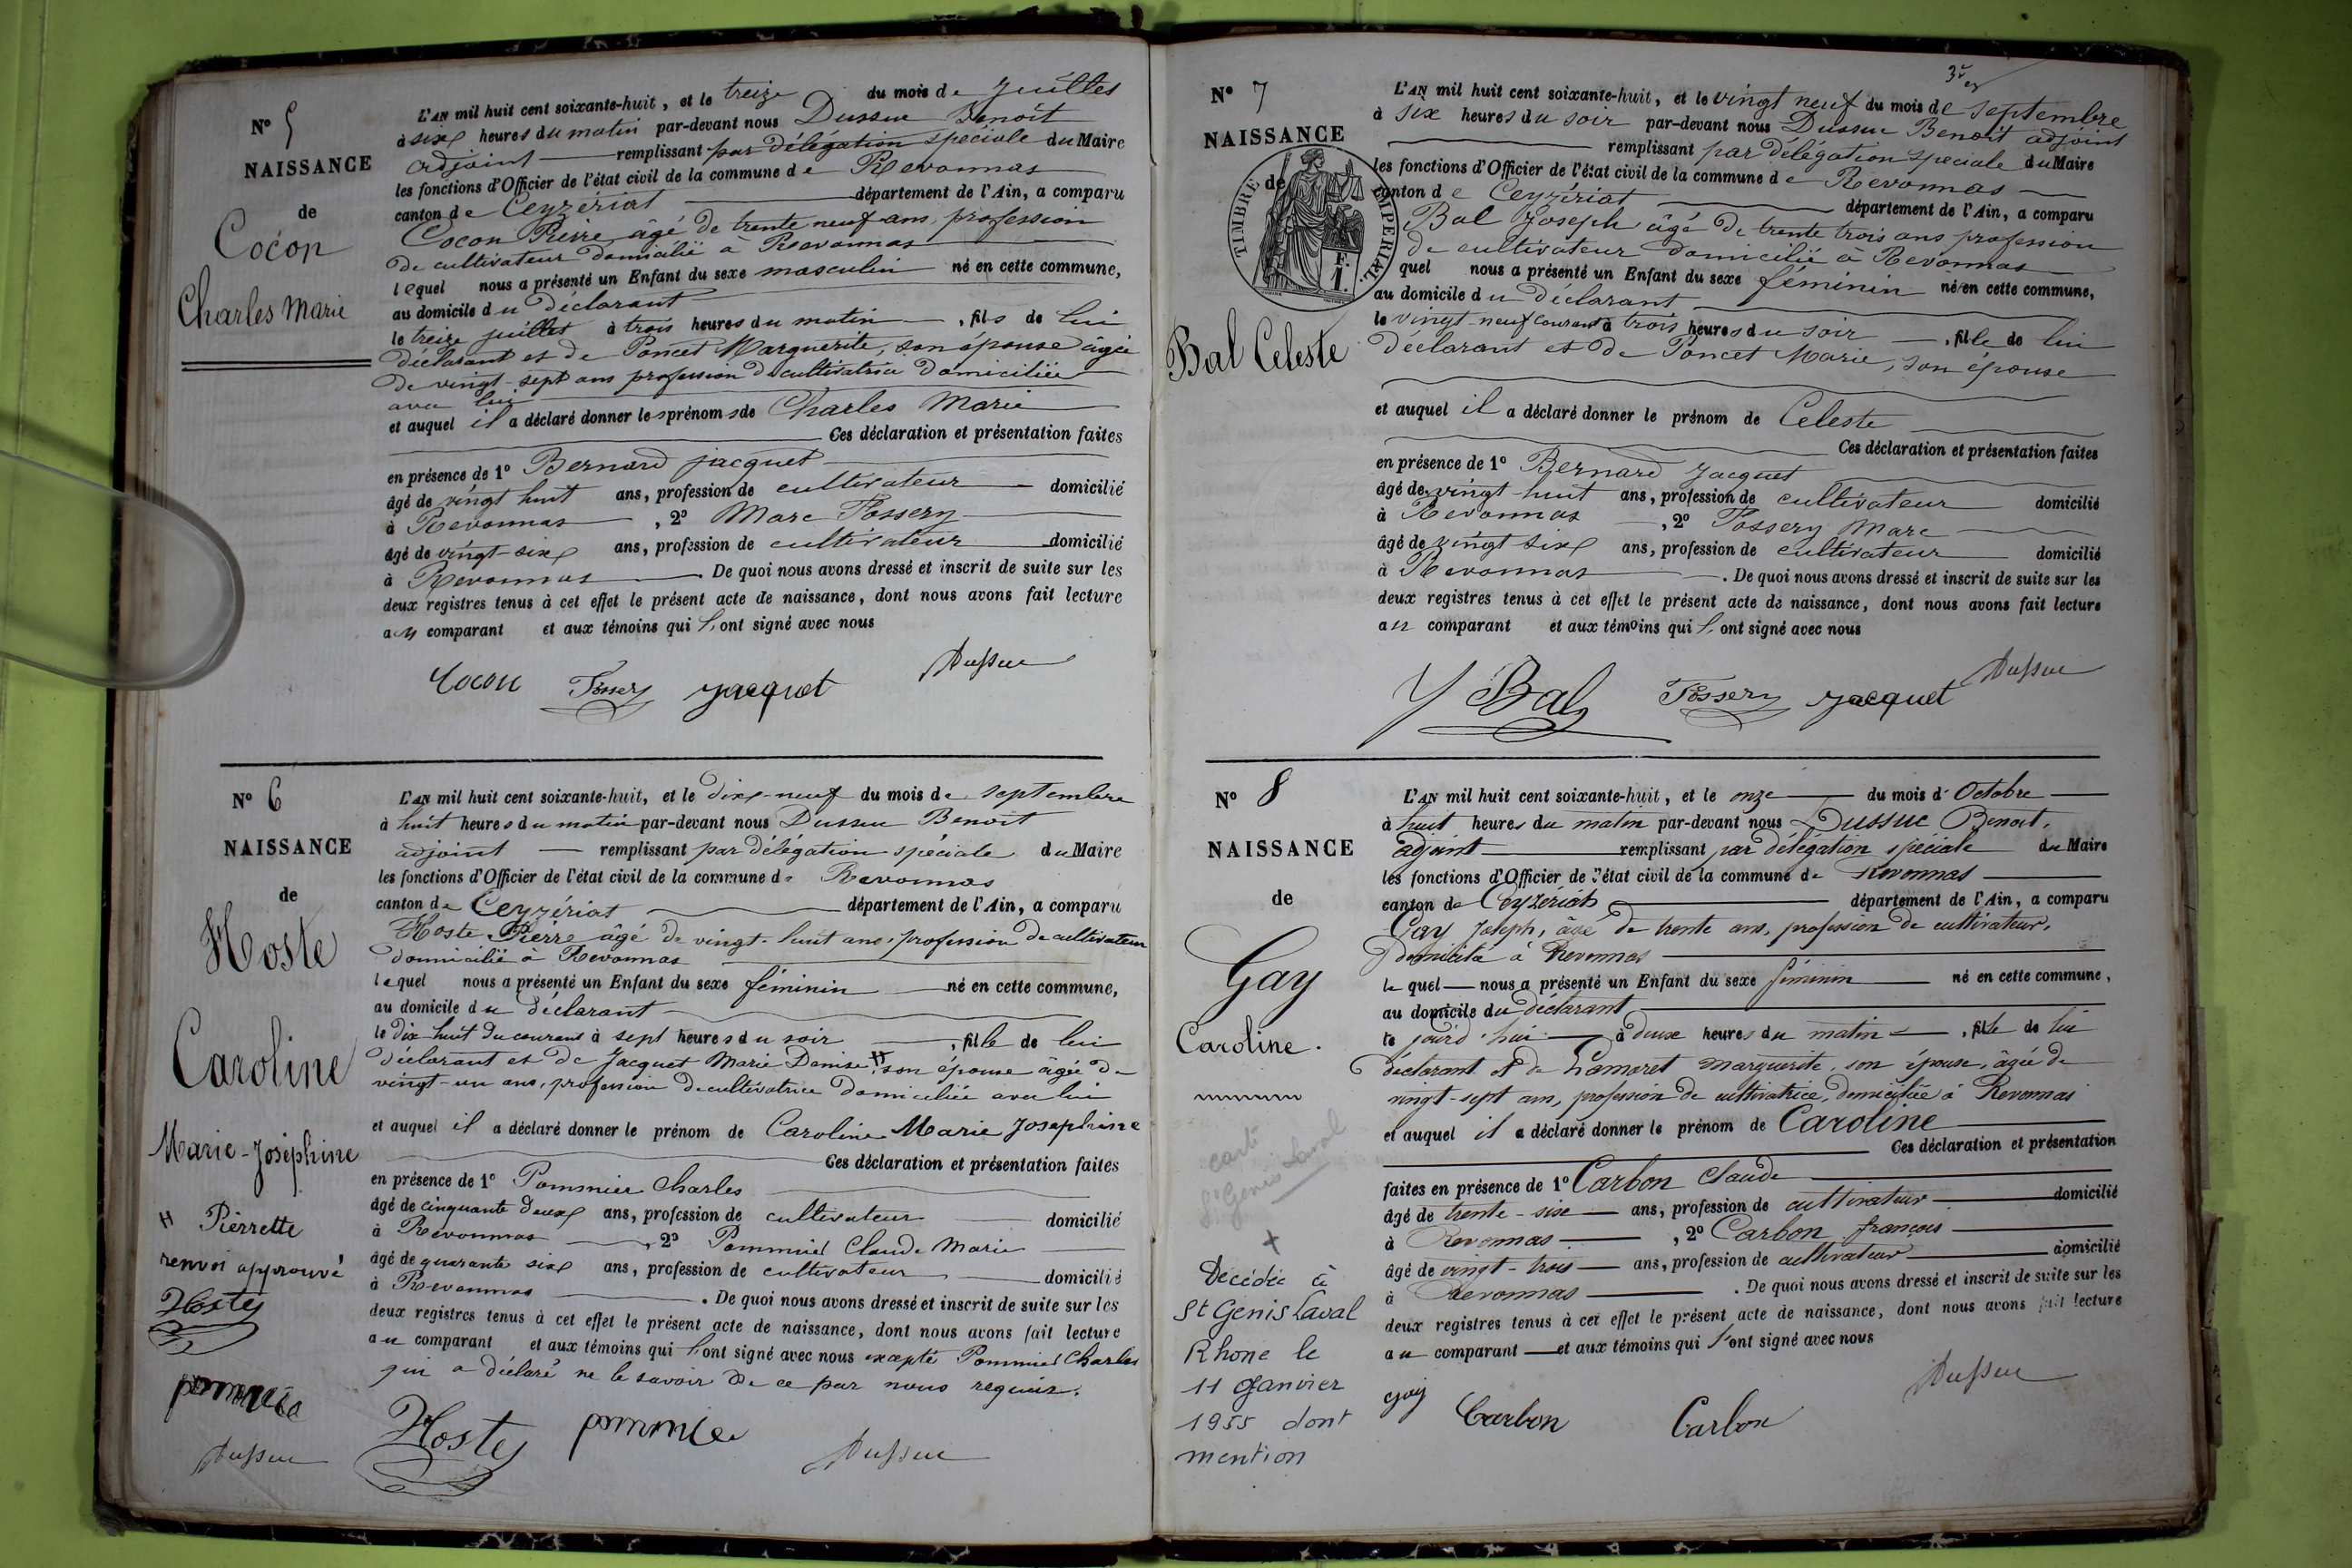 N° 5
NAISSANCE
de
Cocon
Charles Marie
L'AN mil huit cent soixante-huit, et le treize du mois de Juillet
à six heures du matin par-devant nous Dussuc Benoît
adjoint remplissant par délégation spéciale du Maire
les fonctions d'Officier de l'état civil de la commune de Revonnas
canton de Ceyzériat département de l'Ain, a comparu
Cocon Pierre âgé de trente neuf ans, profession
de cultivateur domicilié à Revonnas
lequel nous a présenté un Enfant du sexe masculin né en cette commune,
au domicile du déclarant
le treize juillet à trois heures du matin, fils de lui
déclarant et de Poncet Marguerite, son épouse âgée
de vingt-sept ans profession de cultivatrice domiciliée
avec lui
et auquel il a déclaré donner les prénoms de Charles Marie
Ces déclaration et présentation faites
en présence de 1° Bernard jacquet
âgé de vingt huit ans, profession de cultivateur domicilié
à Revonnas, 2° Marc Fossery
âgé de vingt-six ans, profession de cultivateur domicilié
à Revonnas. De quoi nous avons dressé et inscrit de suite sur les
deux registres tenus à cet effet le présent acte de naissance, dont nous avons fait lecture
au comparant et aux témoins qui l'ont signé avec nous
Cocon Fossery jacquet Dussuc
N° 6
NAISSANCE
de
Hoste
Caroline
Marie-Joséphine
H Pierrette
renvoi approuvé
Hoste
pommier
Dussuc
L'AN mil huit cent soixante-huit, et le dix-neuf du mois de septembre
à huit heures du matin par-devant nous Dussuc Benoit
adjoint remplissant par délégation spéciale du Maire
les fonctions d'Officier de l'état civil de la commune de Revonnas
canton de Ceyzériat département de l'Ain, a comparu
Hoste Pierre âgé de vingt-huit ans, profession de cultivateur
domicilié à Revonnas
lequel nous a présenté un Enfant du sexe féminin né en cette commune,
au domicile du déclarant
le dix huit du courant à sept heures du soir, fille de lui
déclarant et de Jacquet Marie Denise H son épouse âgée de
vingt-un ans, profession de cultivatrice domiciliée avec lui
et auquel il a déclaré donner le prénom de Caroline Marie Josephine
Ces déclaration et présentation faites
en présence de 1° Pommier Charles
âgé de cinquante deux ans, profession de cultivateur domicilié
à Revonnas, 2° Pommier Claude Marie
âgé de quarante six ans, profession de cultivateur domicilié
à Revonnas. De quoi nous avons dressé et inscrit de suite sur les
deux registres tenus à cet effet le présent acte de naissance, dont nous avons fait lecture
au comparant et aux témoins qui l'ont signé avec nous excepté Pommier Charles
qui a déclaré ne le savoir de ce par nous requis.
Hoste pommier Dussuc
3e
N° 7
NAISSANCE
de
TIMBRE IMPERIAL
F.
1.
Bal Celeste
L'AN mil huit cent soixante-huit, et le vingt neuf du mois de septembre
à six heures du soir par-devant nous Dussuc Benoit adjoint
remplissant par délégation speciale du Maire
les fonctions d'Officier de l'état civil de la commune de Revonnas
canton de Ceyzériat département de l'Ain, a comparu
Bal Joseph âgé de trente trois ans profession
de cultivateur domicilié à Revonnas
quel nous a présenté un Enfant du sexe féminin né en cette commune,
au domicile du déclarant
le vingt-neuf courant à trois heures du soir, fille de lui
déclarant et de Poncet Marie, son épouse
et auquel il a déclaré donner le prénom de Celeste
Ces déclaration et présentation faites
en présence de 1° Bernard Jacquet
âgé de vingt-huit ans, profession de cultivateur domicilié
à Revonnas, 2° Fossery Marc
âgé de vingt six ans, profession de cultivateur domicilié
à Revonnas. De quoi nous avons dressé et inscrit de suite sur les
deux registres tenus à cet effet le présent acte de naissance, dont nous avons fait lecture
au comparant et aux témoins qui l'ont signé avec nous
J Bal Fossery jacquet Dussuc
N° 8
NAISSANCE
de
Gay
Caroline.
carte
St Genis Laval
+
Décédée à
St Genis Laval
Rhone le
11 Janvier
1955 dont
mention
L'AN mil huit cent soixante-huit, et le onze du mois d'Octobre
à huit heures du matin par-devant nous Dussuc Benoit,
adjoint remplissant par délégation spéciale du Maire
les fonctions d'Officier de l'état civil de la commune de Revonnas
canton de Ceyzériat département de l'Ain, a comparu
Gay Joseph, âgé de trente ans, profession de cultivateur,
domicilié à Revonnas
le quel nous a présenté un Enfant du sexe féminin né en cette commune,
au domicile du déclarant
le jourd'hui à deux heures du matin, fille de lui
déclarant et de Lamoret marguerite, son épouse, âgée de
vingt-sept ans, profession de cultivatrice, domiciliée à Revonnas
et auquel il a déclaré donner le prénom de Caroline
Ces déclaration et présentation
faites en présence de 1° Carbon Claude
âgé de trente-six ans, profession de cultivateur domicilié
à Revonnas, 2° Carbon françois
âgé de vingt-trois ans, profession de cultivateur domicilié
à Revonnas. De quoi nous avons dressé et inscrit de suite sur les
deux registres tenus à cet effet le présent acte de naissance, dont nous avons fait lecture
au comparant et aux témoins qui l'ont signé avec nous
Gay Carbon Carbon Dussuc